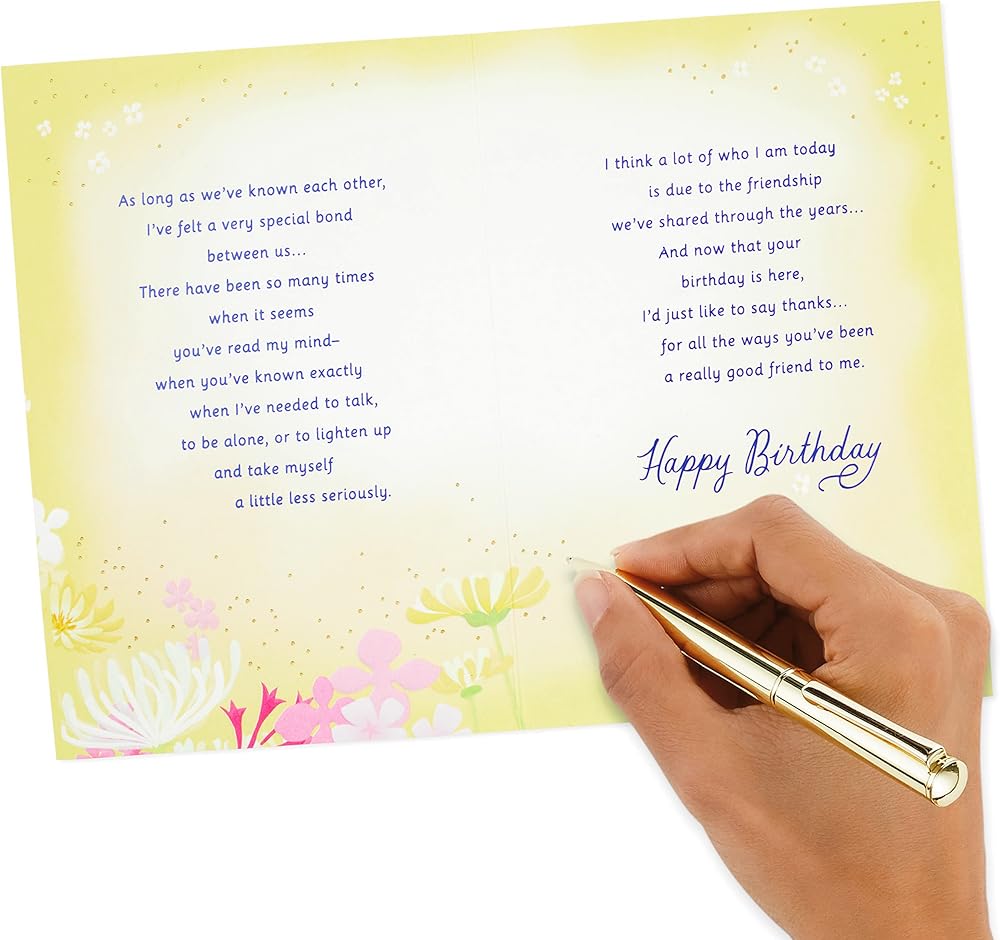 As long as we've known each other,
I've felt a very special bond
between us...
There have been so many times
when it seems
you've read my mind–
when you've known exactly
when I've needed to talk,
to be alone, or to lighten up
and take myself
a little less seriously.
I think a lot of who I am today
is due to the friendship
we've shared through the years...
And now that your
birthday is here,
I'd just like to say thanks...
for all the ways you've been
a really good friend to me.
Happy Birthday